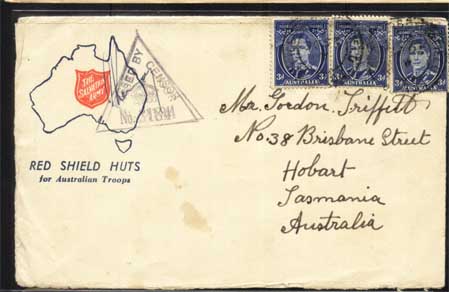 THE
SALVATION
ARMY
RED SHIELD HUTS
for Australian Troops
PASSED BY CENSOR
No.
3d 3d
AUSTRALIA
3d 3d
AUSTRALIA
3d 3d
AUSTRALIA
Mr. Gordon Triffitt
No 38 Brisbane Street
Hobart
Tasmania
Australia